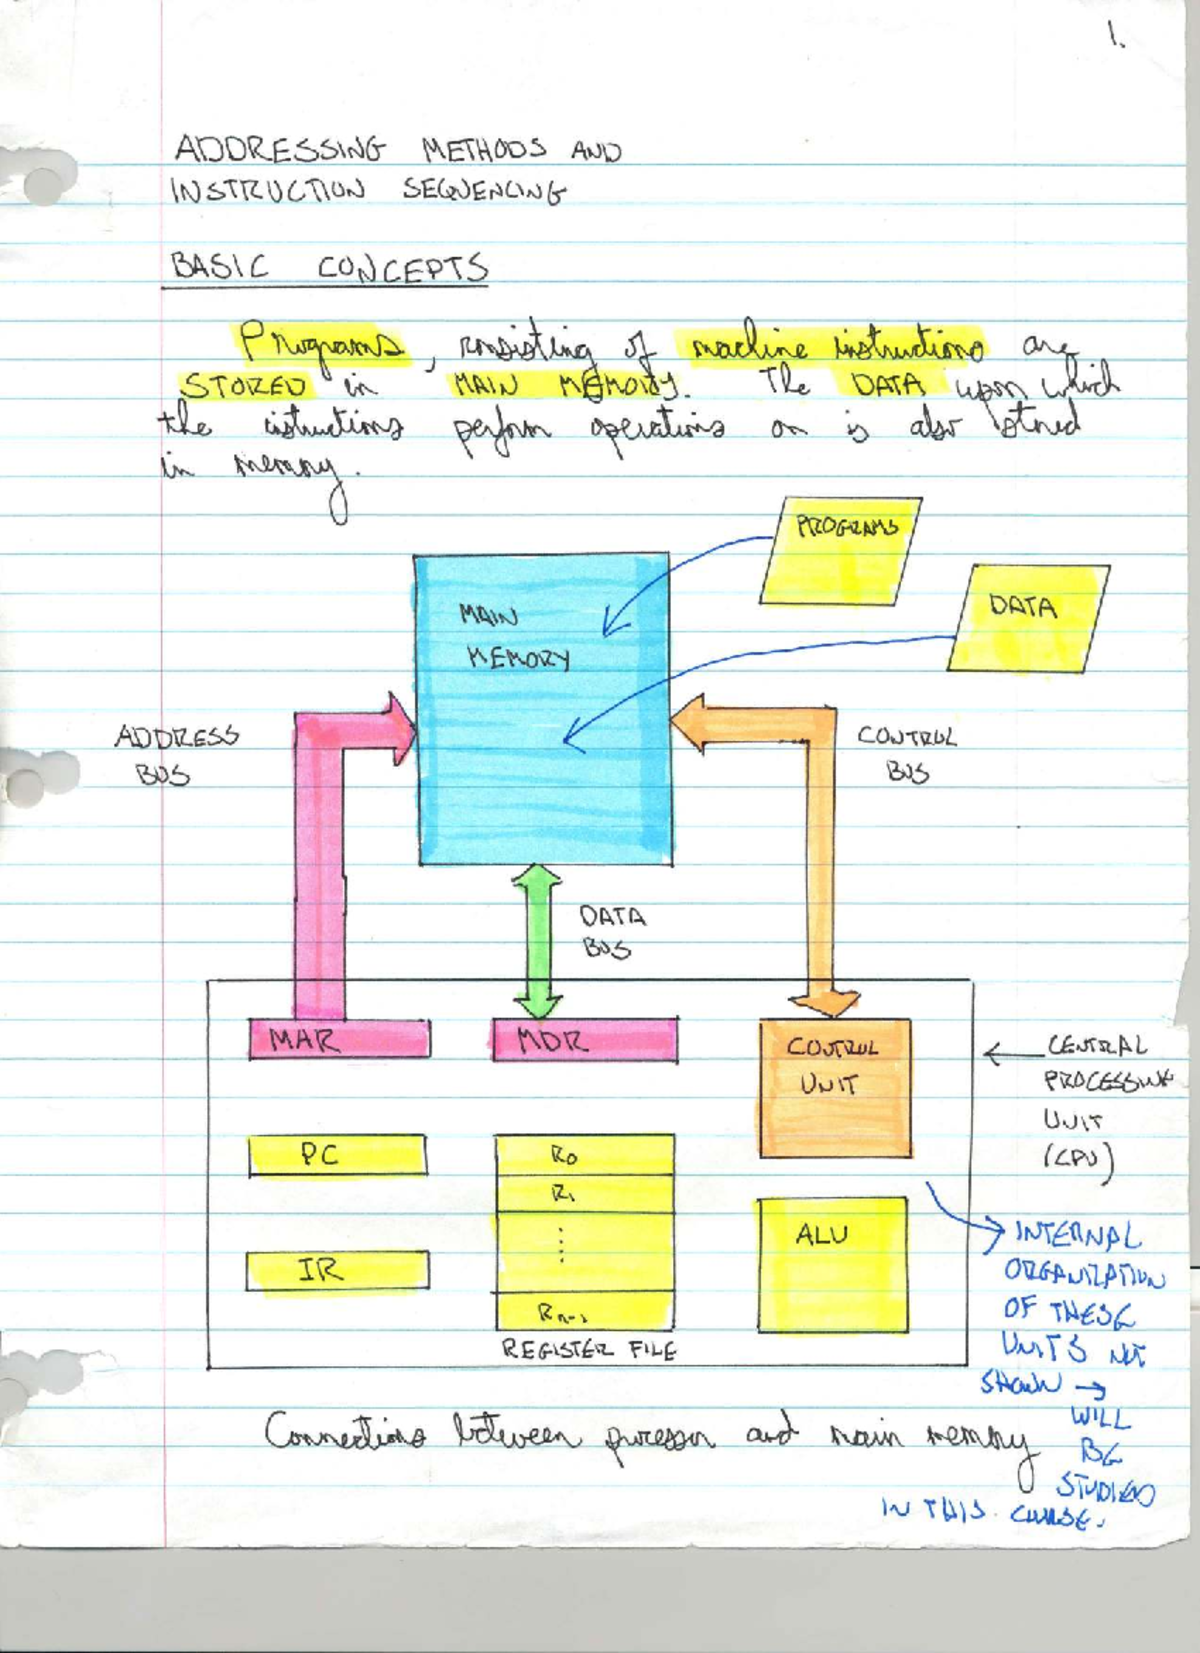 1.
ADDRESSING METHODS AND
INSTRUCTION SEQUENCING
BASIC CONCEPTS
Programs, consisting of machine instructions are
STORED in MAIN MEMORY. The DATA upon which
the istructions perform operations on is also stored
in memory.
PROGRAMS
DATA
MAIN
MEMORY
ADDRESS
BUS
CONTROL
BUS
DATA
BUS
MAR
MDR
CONTROL
UNIT
CENTRAL
PROCESSING
UNIT
(CPU)
PC
R0
R1
IR
Rn-1
REGISTER FILE
ALU
INTERNAL
ORGANIZATION
OF THESE
UNITS NOT
SHOWN →
WILL
BE
STUDIED
IN THIS COURSE.
Connections between processor and main memory